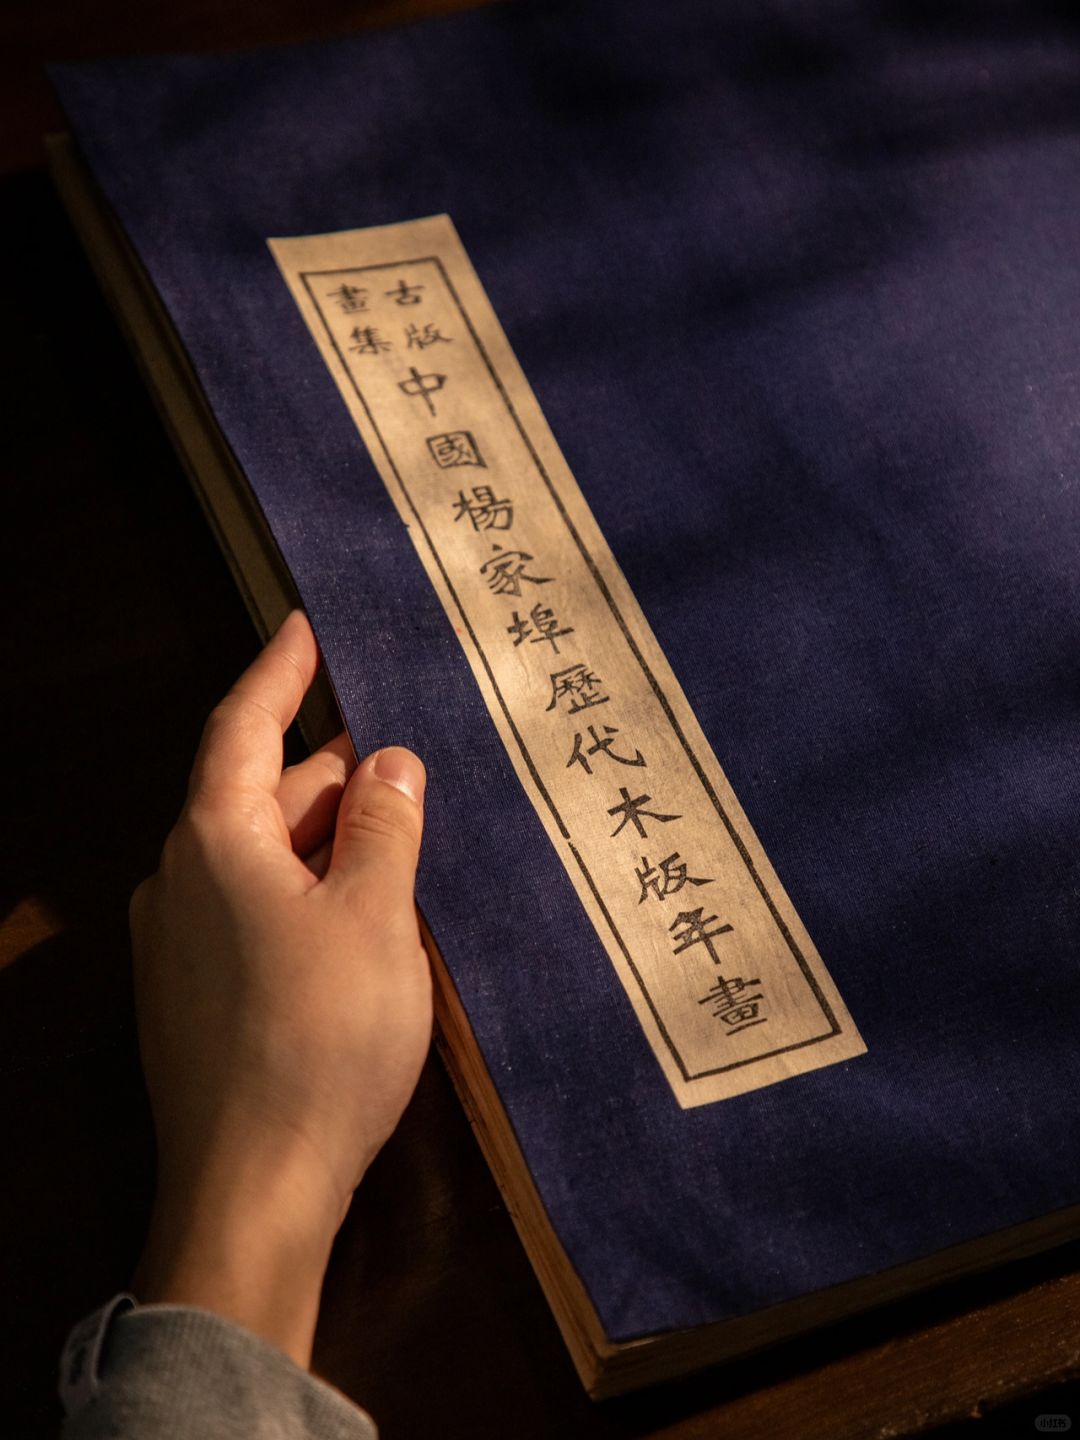 古版
畫集
中國楊家埠歷代木版年畫
小红书